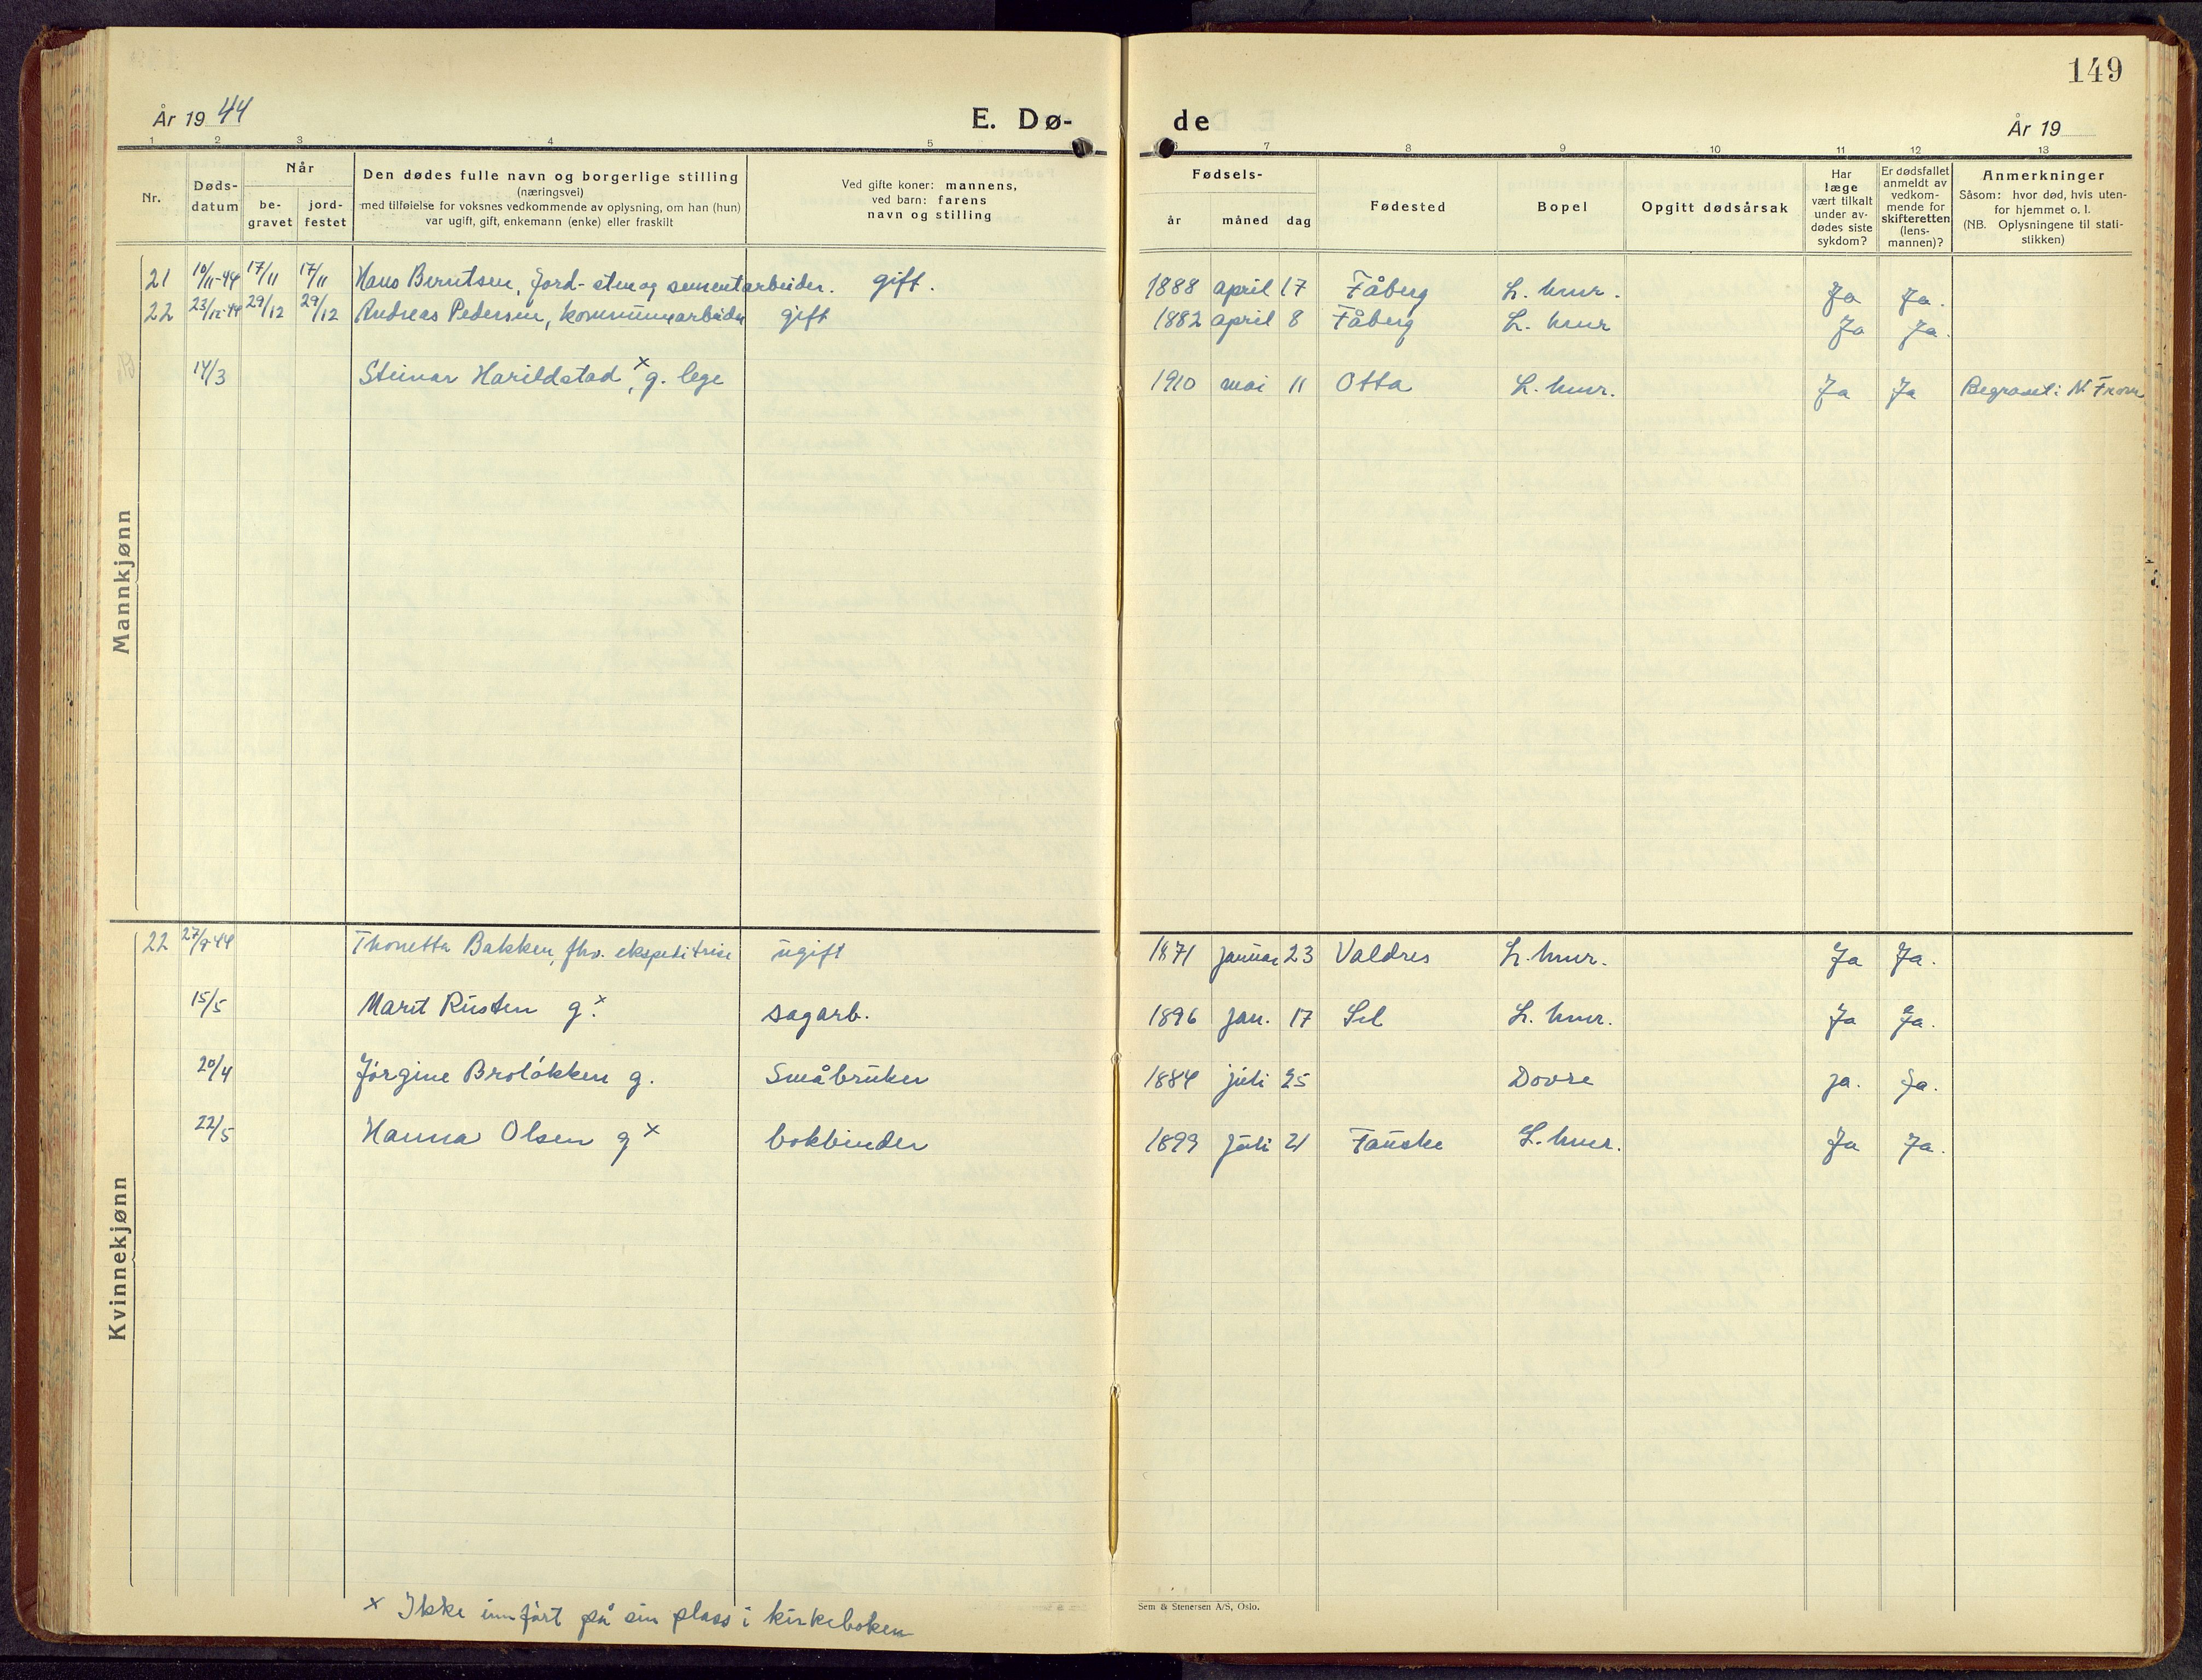 149
År 19 44 E. Dø- de År 19
1 2 3 4 5 6 7 8 9 10 11 12 13
Nr.
Døds-
datum
Når
be-
gravet
jord-
festet
Den dødes fulle navn og borgerlige stilling
(næringsvei)
med tilføielse for voksnes vedkommende av oplysning, om han (hun)
var ugift, gift, enkemann (enke) eller fraskilt
Ved gifte koner: mannens,
ved barn: farens
navn og stilling
Fødsels-
år måned dag
Fødested
Bopel
Opgitt dødsårsak
Har
læge
vært tilkalt
under av-
dødes siste
sykdom?
Er dødsfallet
anmeldt av
vedkom-
mende for
skifteretten
(lens-
mannen)?
Anmerkninger
Såsom: hvor død, hvis uten-
for hjemmet o. l.
(NB. Oplysningene til stati-
stikken)
Mannkjønn
21 10/11-44 17/11 17/11 Hans Berntsen, jord- sten og sementarbeider. gift. 1888 april 17 Fåberg L. hmr. Ja Ja.
22 23/12-44 29/12 29/12 Andreas Pedersen, kommunearbeider gift 1882 april 8 Fåberg L. hmr Ja Ja.
14/3 Steinar Harildstad x, g. lege 1910 mai 11 Otta L. hmr. Ja Ja Begravet i N. Fron
Kvinnekjønn
22 27/9 44 Thonetta Bakken, fhv. ekspeditrise ugift 1871 januar 23 Valdres L. hmr. Ja Ja.
15/5 Marit Rusten g. x sagarb. 1896 jan. 17 Sel L. hmr. Ja Ja.
20/4 Jørgine Broløkken g. Småbruker 1884 juli 25 Dovre ja. Ja.
22/5 Hanna Olsen g x bokbinder 1899 juli 21 Fauske L. hmr. Ja Ja.
x Ikke innført på sin plass i kirkeboken
Sem & Stenersen A/S, Oslo.